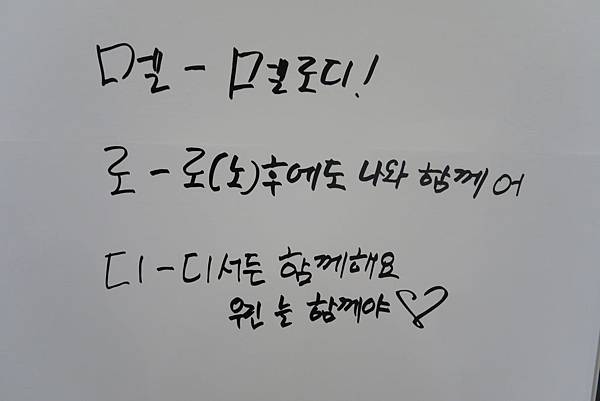 멜 - 멜로디!
로 - 로(노)후에도 나와 함께 어
디 - 디서든 함께해요
우린 늘 함께야♡